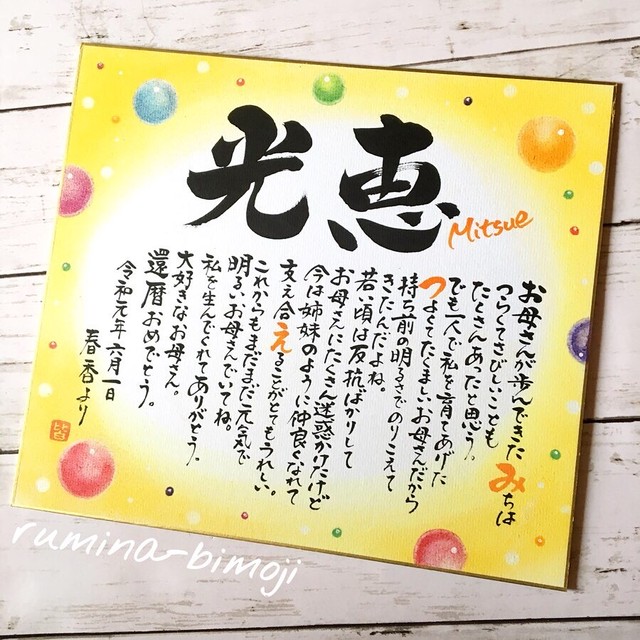 光恵
Mitsue
お母さんが歩んできたみちは
つらくてさびしいことも
たくさんあったと思う。
でも一人で私を育てあげた
つよくてたくましいお母さんだから
持ち前の明るさでのりこえて
きたんだよね。
若い頃は反抗ばかりして
お母さんにたくさん迷惑かけたけど
今は姉妹のように仲良くなれて
支え合えることがとってもうれしい。
これからもまだまだ元気で
明るいお母さんでいてね。
私を生んでくれてありがとう。
大好きなお母さん。
還暦おめでとう。
令和元年六月一日
春香より
rumina-bimoji